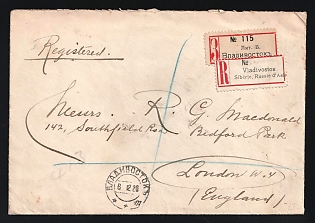 Registered.
№ 115
Лит. В.
Владивостокъ
№
Vladivostok
Sibérie, Russie d'Asie
Messrs. R. G. Macdonald
142, Southfield Road
Bedford Park
London W.4
(England)
ВЛАДИВОСТОКЪ
6 12 20